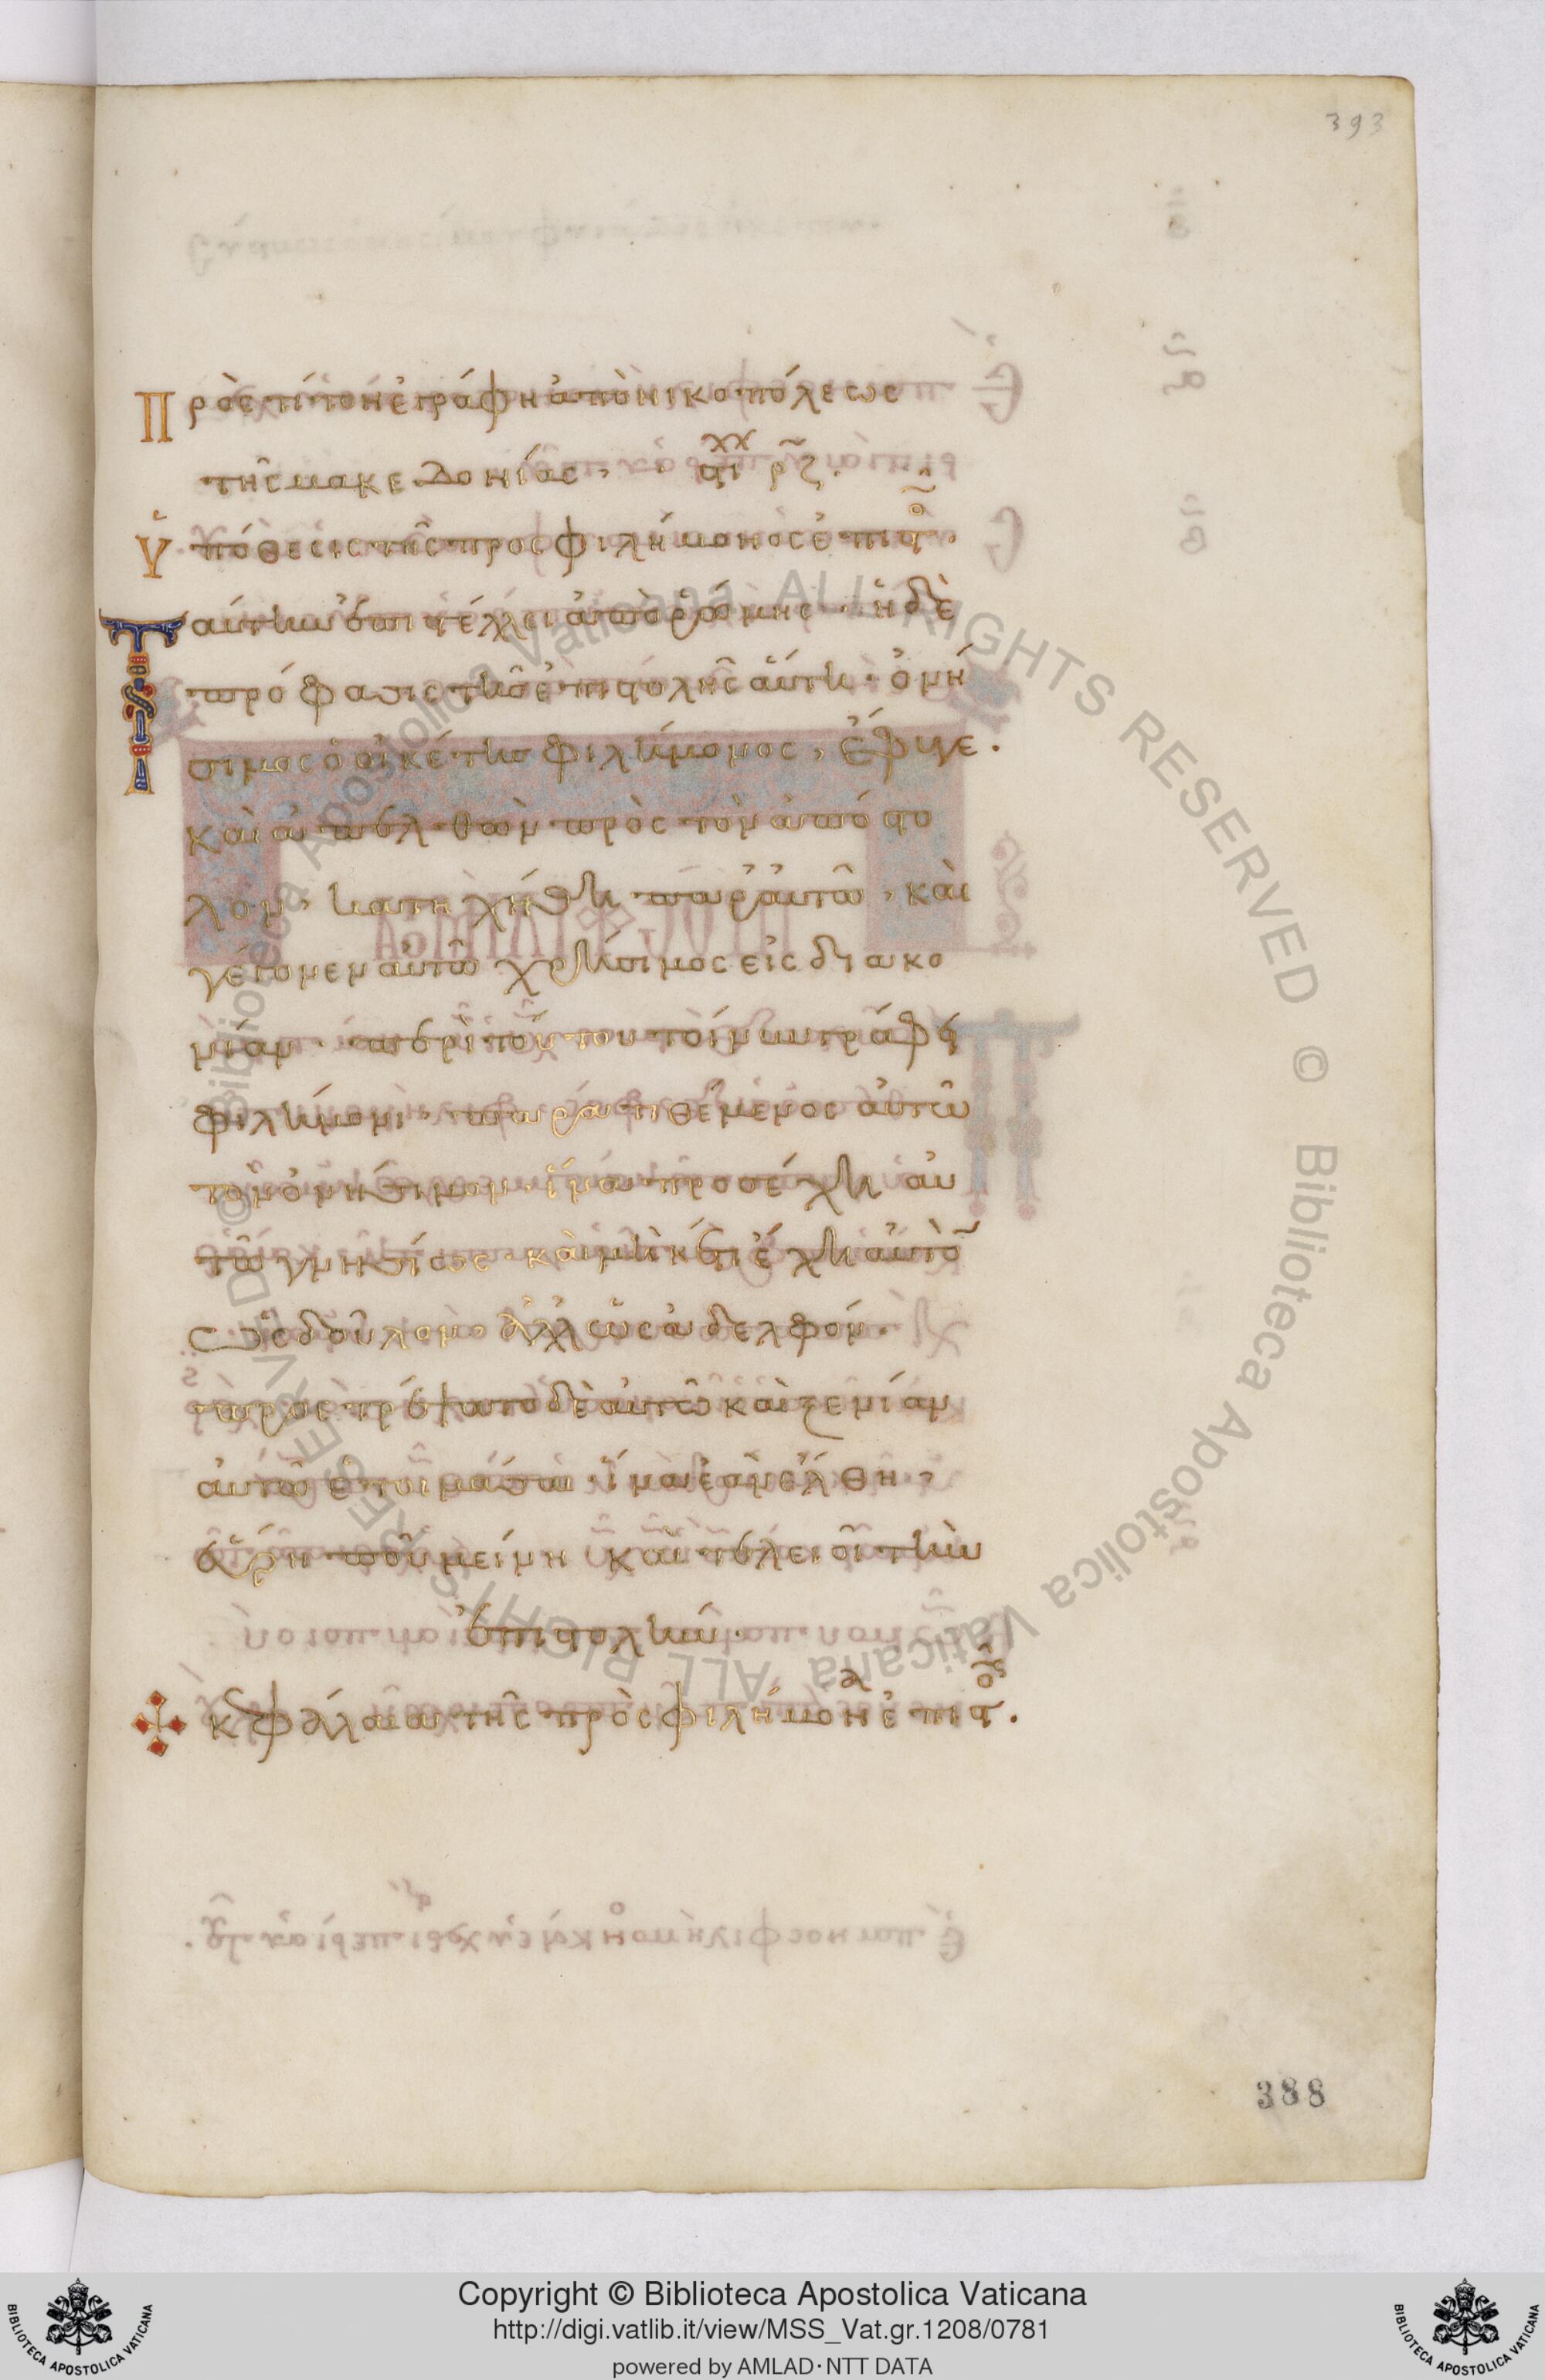 393
Πρὸς τίτον ἐγράφη ἀπὸ νικοπόλεως
τῆς μακεδονίας, στιχ ρζ.
Ὑπόθεσις τῆς προς φιλήμονος ἐπιστο.
Ταύτην ἐπιστέλλει ἀπὸ ρώμης. ἡ δὲ
πρόφασις τῆς ἐπιστολῆς αὕτη. ὀνή
σιμος ὁ οἰκέτης φιλήμονος, ἔφυγε.
καὶ ἀπελθὼν πρὸς τὸν ἀπόστο
λον, κατηχήθη παρ' αὐτῶ, καὶ
γέγονεν αὐτῶ χρήσιμος εἰς διακο
νίαν. περὶ τούτου τοίνυν γράφει
φιλήμονι. παρατιθέμενος αὐτῶ
τὸν ὀνήσιμον. ἵνα προσέχη αὐ
τῶ γνησίως. καὶ μηκέτι ἔχη αὐτὸν
ὡς δοῦλον ἀλλ' ὡς ἀδελφόν.
προετρέψατο δὲ αὐτῶ καὶ ξενίαν
αὐτῶ ἑτοιμάσαι. ἵνα ἐὰν ἔλθη,
εὕρη ποῦ μείνη καὶ τελειοῖ τὴν
ἐπιστολήν.
κεφάλαια τῆς πρὸς φιλήμονα ἐπιστο.
388
Copyright © Biblioteca Apostolica Vaticana
http://digi.vatlib.it/view/MSS_Vat.gr.1208/0781
powered by AMLAD·NTT DATA
BIBLIOTECA APOSTOLICA VATICANA
BIBLIOTECA APOSTOLICA VATICANA
© Biblioteca Apostolica Vaticana ALL RIGHTS RESERVED © Biblioteca Apostolica Vaticana ALL RIGHTS RESERVED